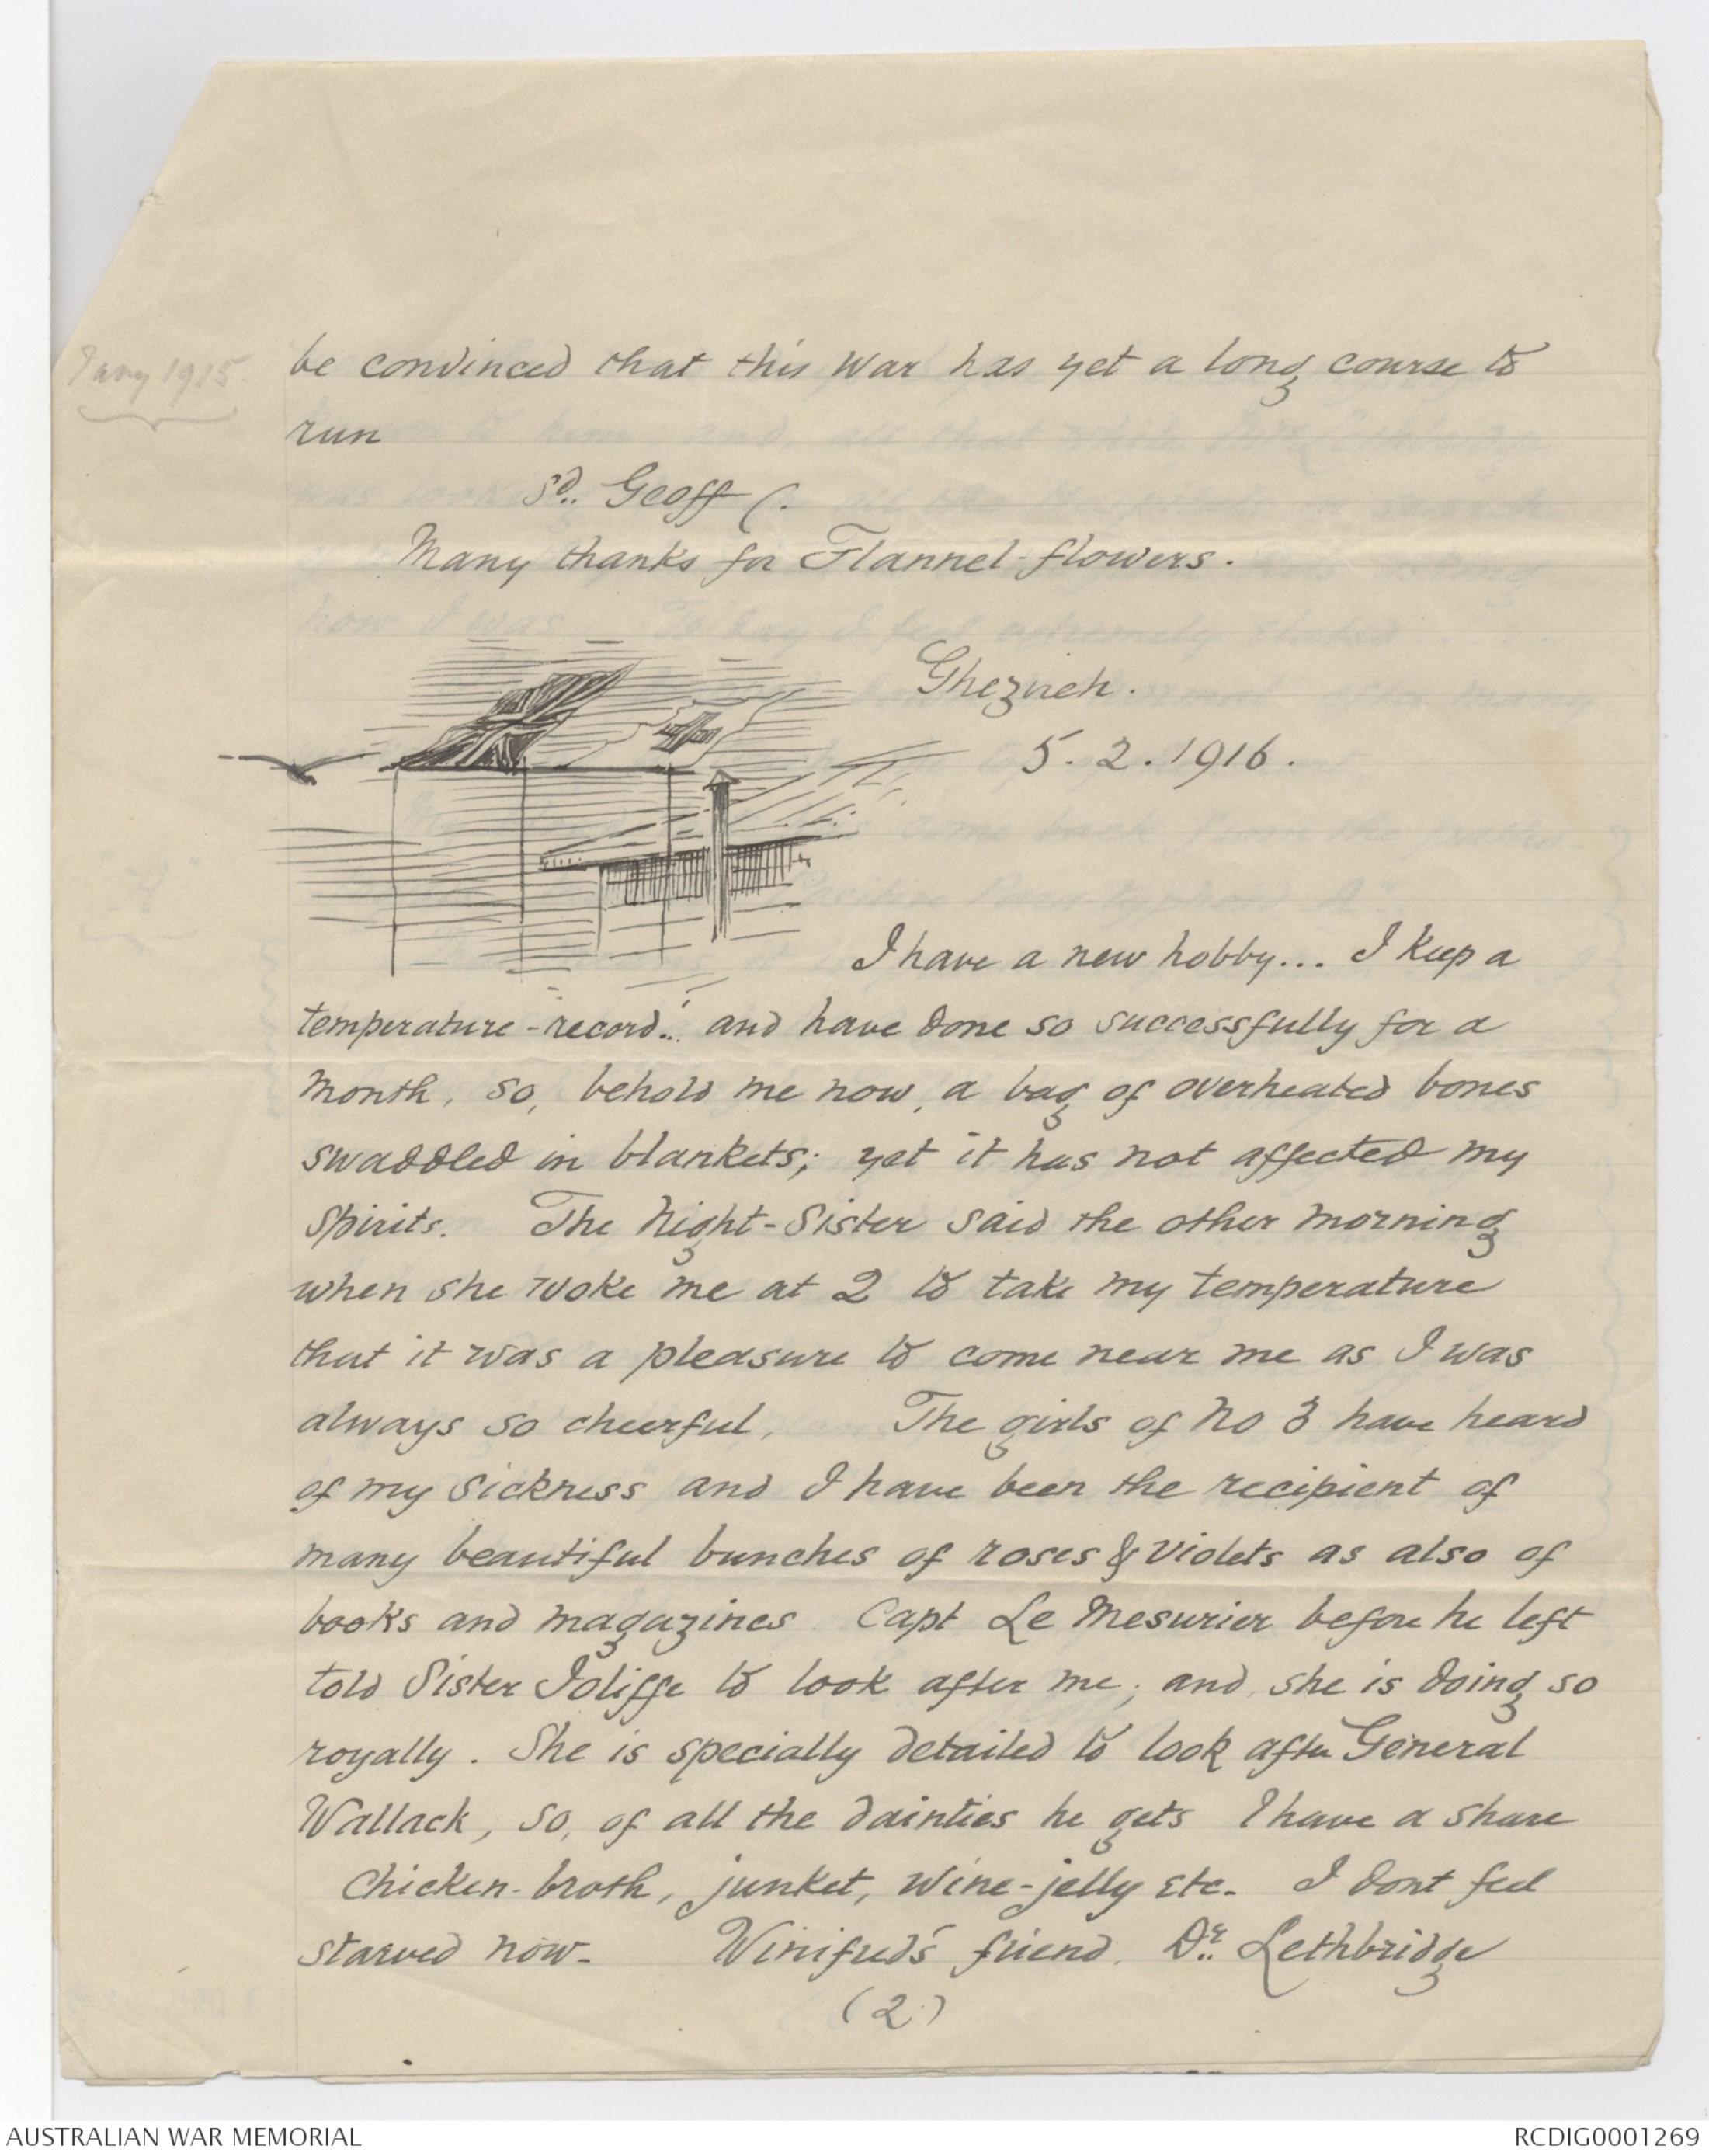 Jany 1915.
be convinced that this War has yet a long course to
run
Sd. Geoff C.
Many thanks for Flannel-flowers.
Ghezireh.
5.2.1916.
I have a new hobby... I keep a
temperature-record!.. and have done so successfully for a
month, so, behold me now, a bag of overheated bones
swaddled in blankets; yet it has not affected my
spirits. The Night-Sister said the other morning
when she woke me at 2 to take my temperature
that it was a pleasure to come near me as I was
always so cheerful. The girls of No 3 have heard
of my sickness and I have been the recipient of
many beautiful bunches of roses & violets as also of
books and magazines Capt Le Mesurier before he left
told Sister Joliffe to look after me; and she is doing so
royally. She is specially detailed to look after General
Wallack, so, of all the dainties he gets I have a share
Chicken-broth, junket, wine-jelly etc. I dont feel
starved now. Winifred's friend. Dr. Lethbridge
(2)
AUSTRALIAN WAR MEMORIAL
RCDIG0001269